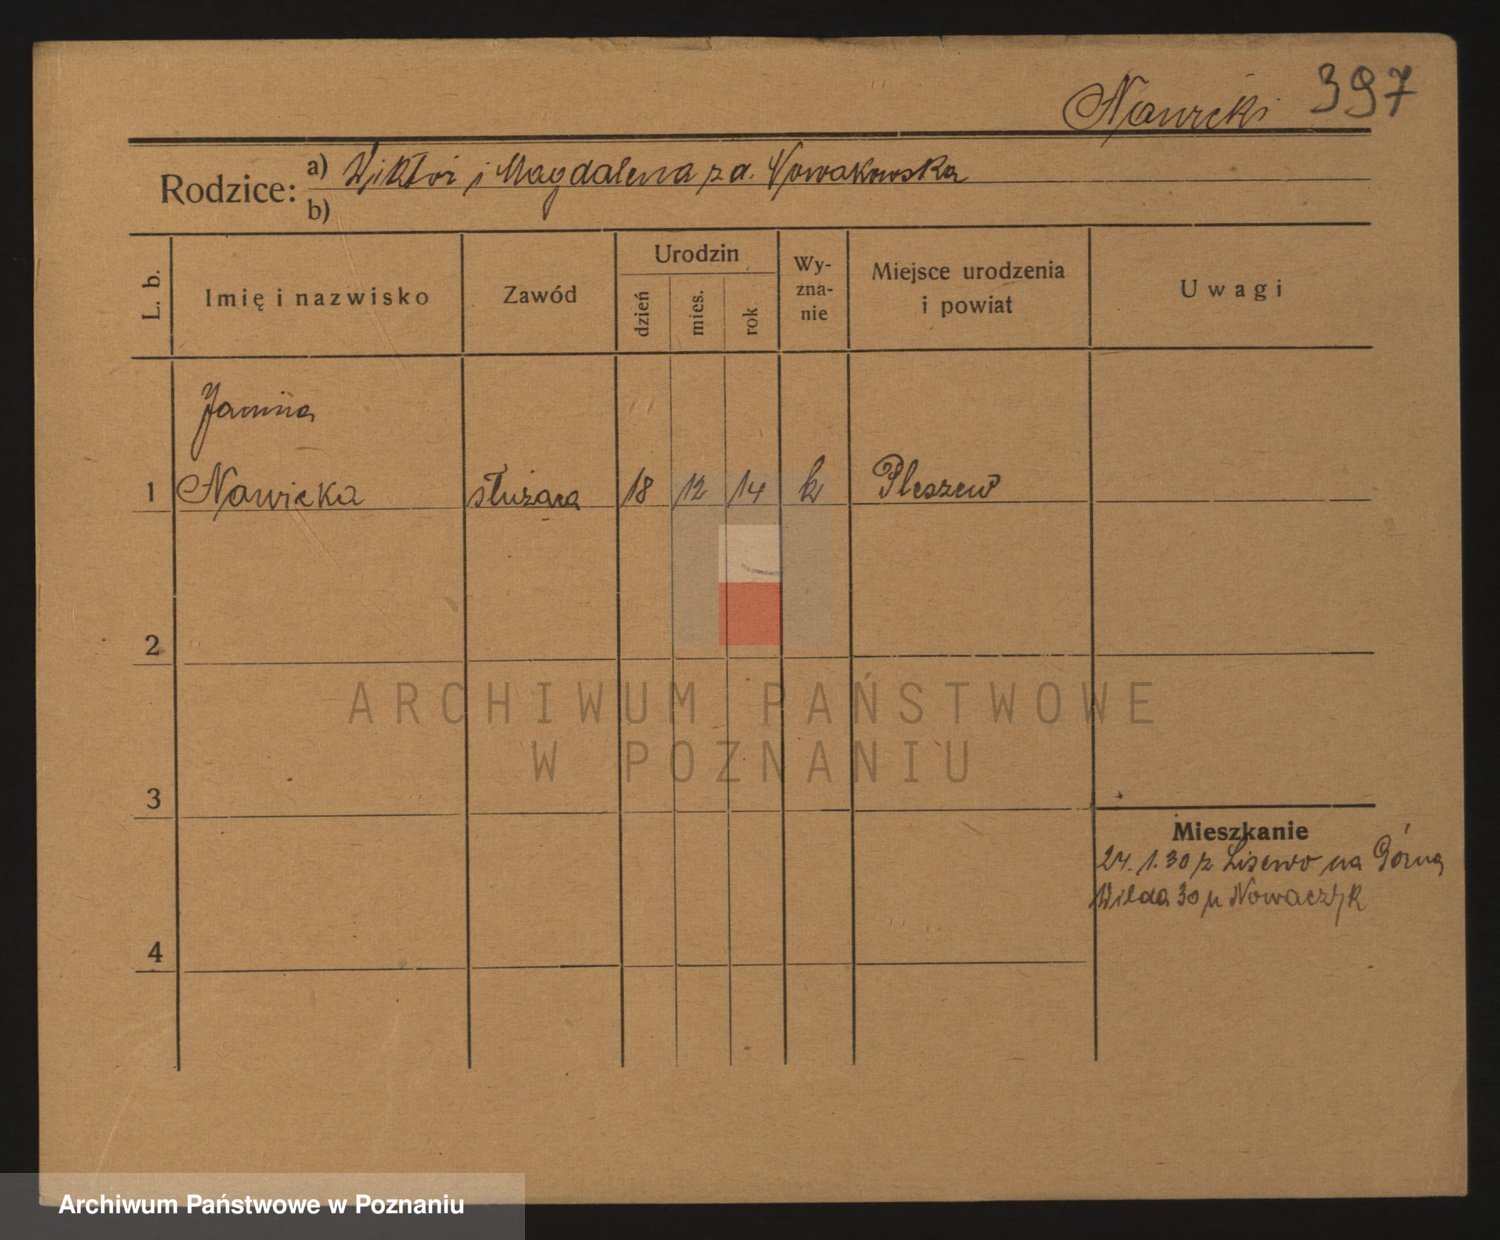 Nawrcki 397
Rodzice:
a) Wiktor i Magdalena z d. Nowakowska
b)
L. b.
Imię i nazwisko
Zawód
Urodzin
dzień
mies.
rok
Wy-
zna-
nie
Miejsce urodzenia
i powiat
Uwagi
Janina
1 Nawicka służąca 18 12 14 k Pleszew
2
ARCHIWUM PAŃSTWOWE
W POZNANIU
3
Mieszkanie
24. 1. 30 z Lisewo na Górną
Wilda 30 u Nowaczyk
4
Archiwum Państwowe w Poznaniu